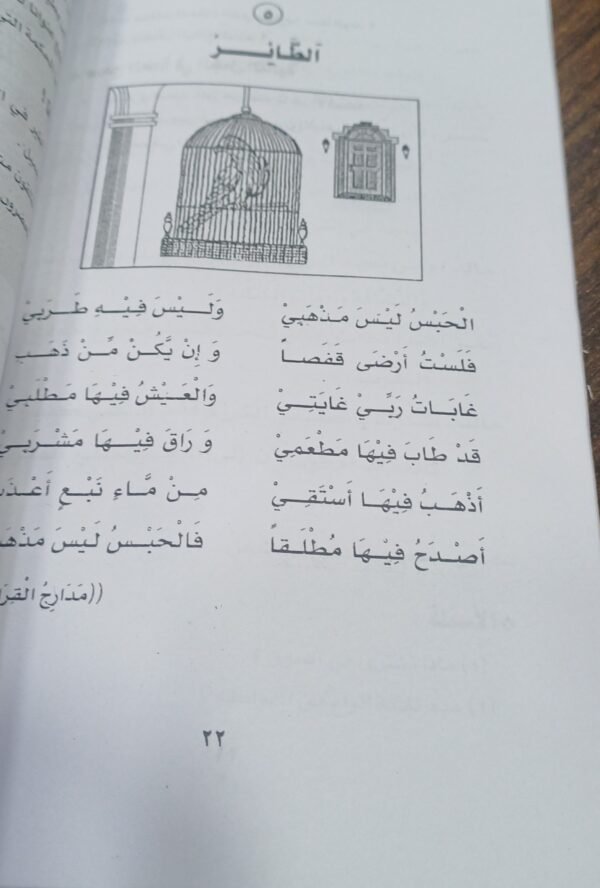 ٥
اَلطَّائِرُ
الْحَبْسُ لَيْسَ مَذْهَبِيْ وَلَيْسَ فِيْهِ طَرَبِيْ
فَلَسْتُ أَرْضَى قَفَصاً وَ إِنْ يَّكُنْ مِّنْ ذَهَب
غَابَاتُ رَبِّيْ غَايَتِيْ وَالْعَيْشُ فِيْهَا مَطْلَبِيْ
قَدْ طَابَ فِيْهَا مَطْعَمِيْ وَ رَاقَ فِيْهَا مَشْرَبِيْ
أَذْهَبُ فِيْهَا أَسْتَقِيْ مِنْ مَّاءِ نَبْعٍ
أَصْدَحُ فِيْهَا مُطْلَقاً فَالْحَبْسُ لَيْسَ
((مَدَارِجُ
٢٢